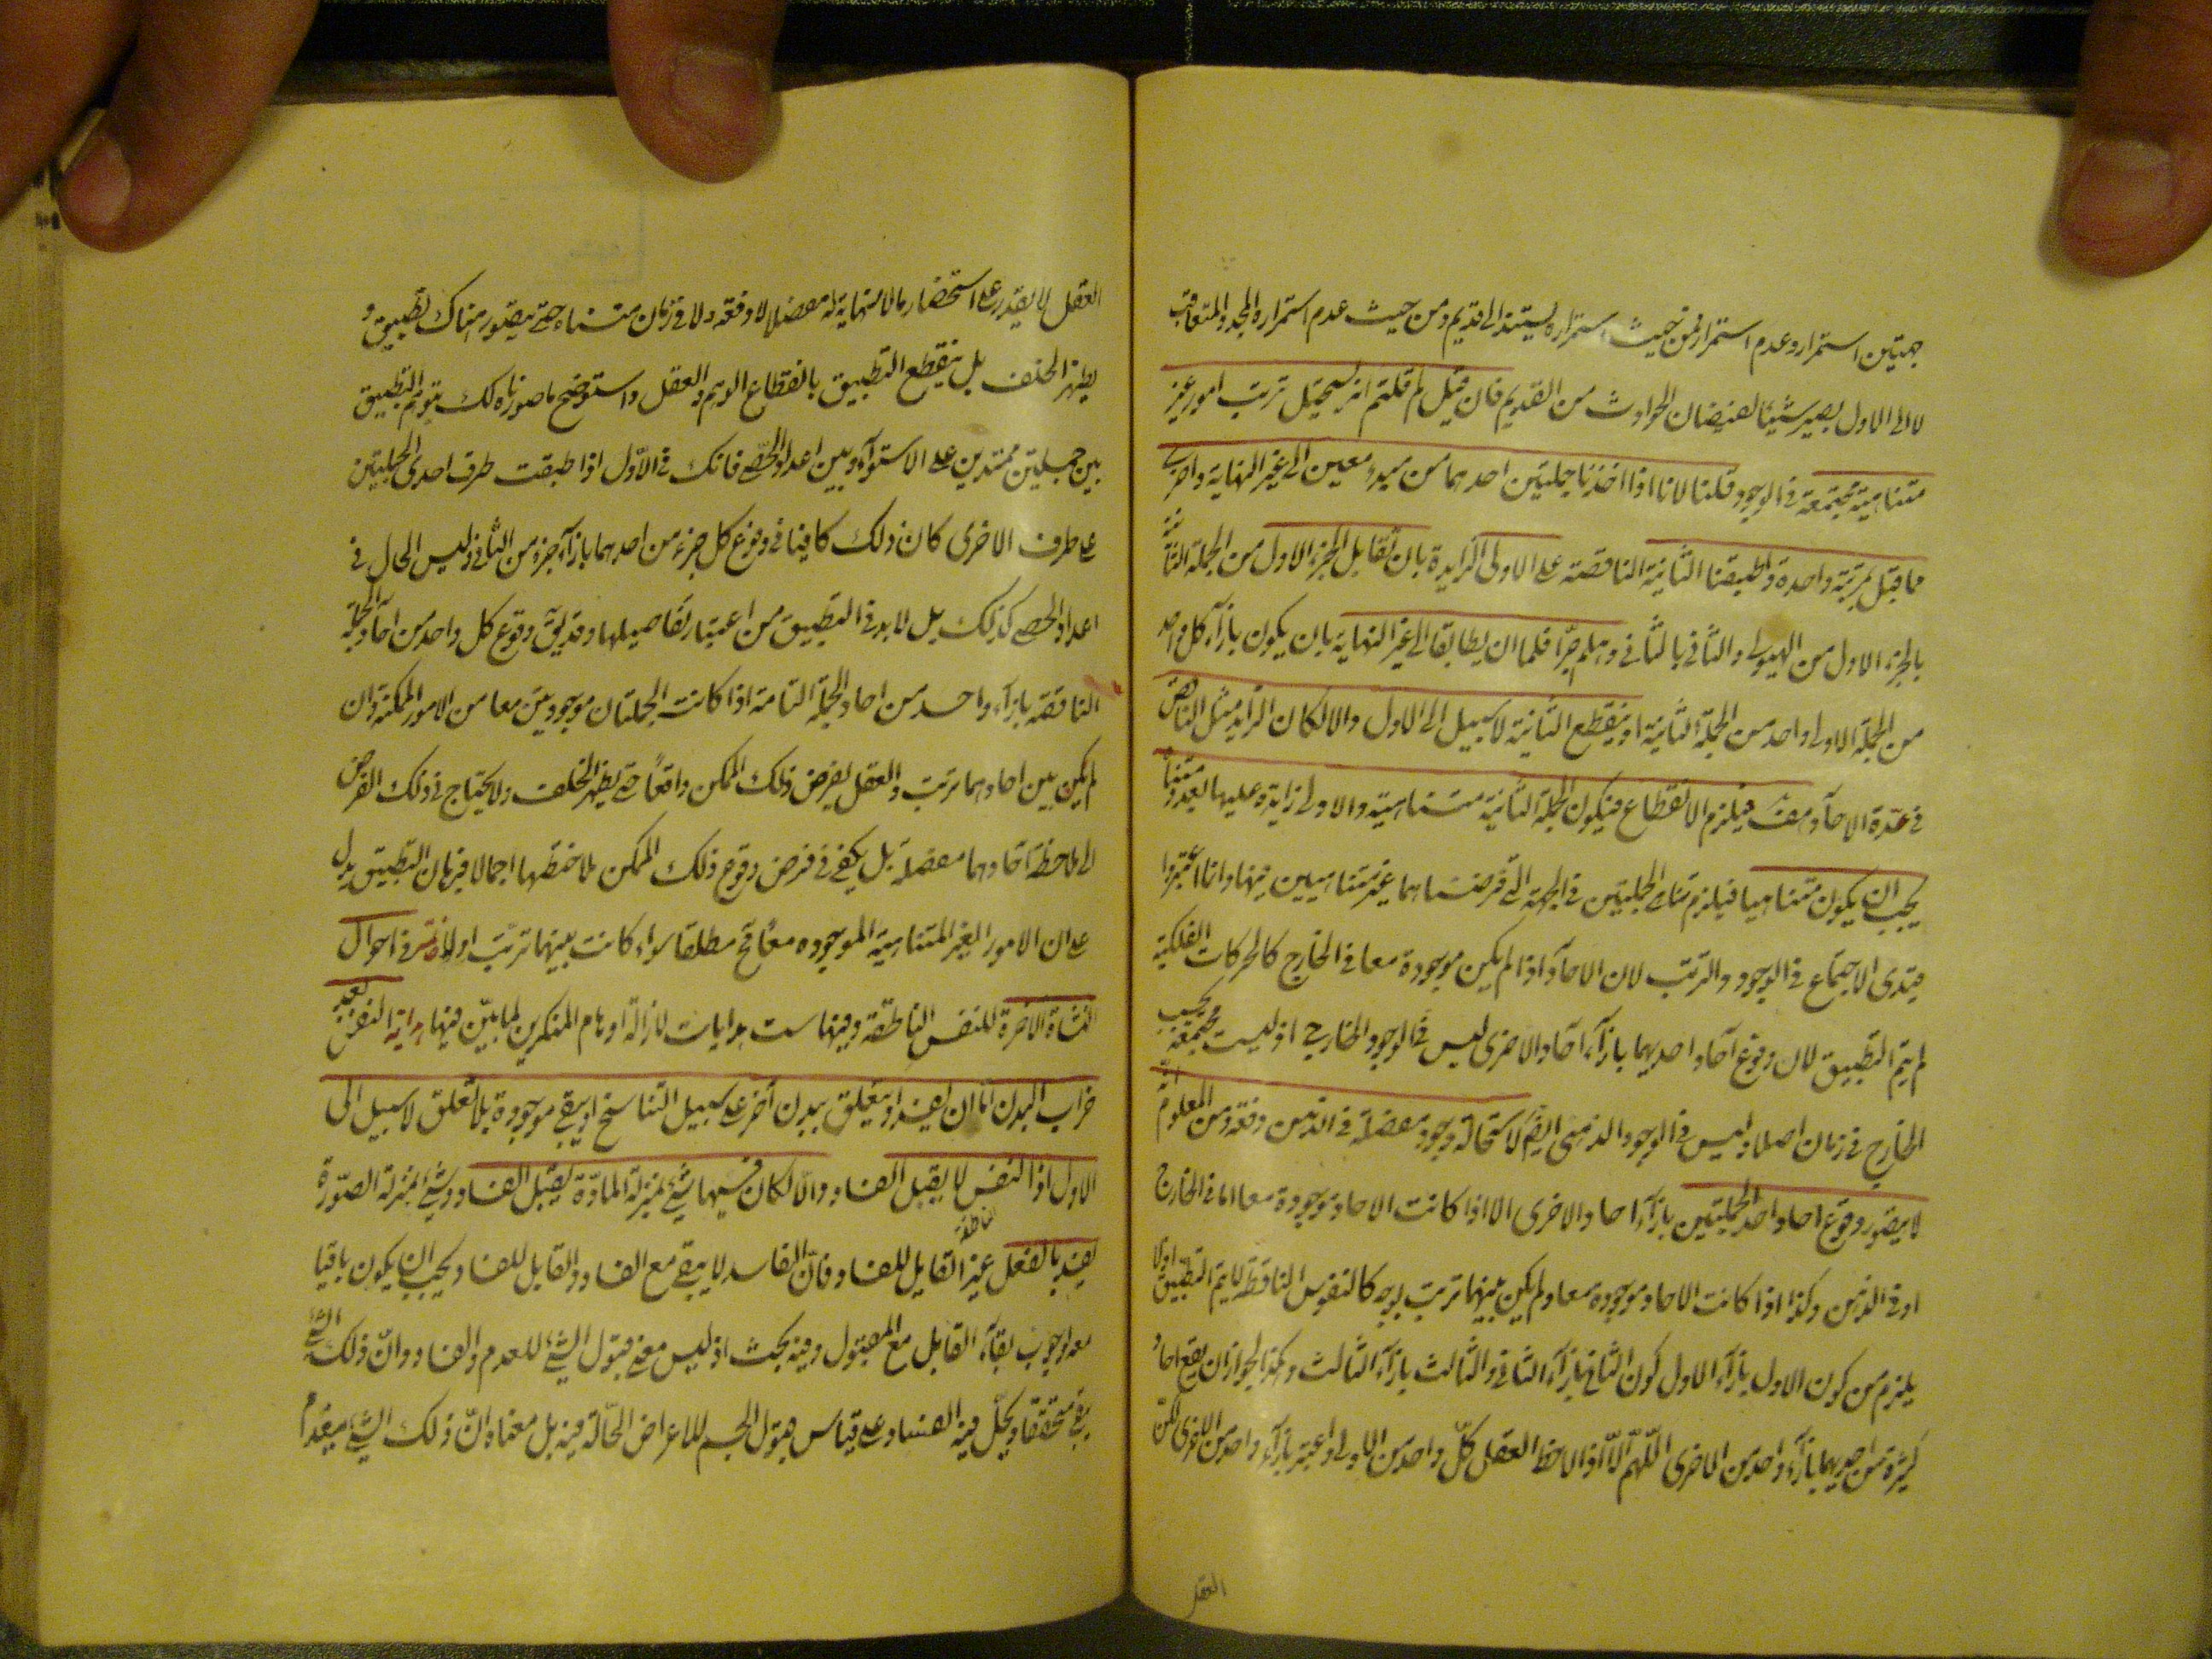 جهتين استمرار وعدم استمرار فمن حيث استمراره يستند الى قديم ومن حيث عدم استمراره المجدد المتعاقب
لا الى الاول يصير شيئا لفيضان الحوادث من القديم فان قيل لم قلتم انه يستحيل ترتب امور غير
متناهية مجتمعة في الوجود قلنا لانا اذا اخذنا جملتين احدهما من مبدء معين الى غير النهاية واخرى
مما قبل بمرتبة واحدة واطبقنا الثانية الناقصة على الاولى الزايدة بان تقابل الجزء الاول من الجملة الثانية
بالجزء الاول من الاولى والثاني بالثاني وهلم جرا فلما ان يطابقا الى غير النهاية بان يكون بازاء كل واحد
من الجملة الاولى واحد من الجملة الثانية او ينقطع الثانية لا سبيل الى الاول والا لكان الزايد مثل الناقص
في عدة الآحاد هف فيلزم الانقطاع فيكون الجملة الثانية متناهية والاولى زايدة عليها بعدد متناه
يجب ان يكون متناهيا فيلزم تناهى الجملتين في الجهة التي فرضناهما غير متناهيين فيها وانما اعتبروا
قيدى الاجتماع في الوجود والترتب لان الآحاد اذا لم يكن موجودة معا في الخارج كالحركات الفلكية
لم يتم التطبيق لان وقوع آحاد احديهما بازاء آحاد الاخرى ليس في الوجود الخارجي اذ ليست مجتمعة بحسب
الخارج في زمان اصلا وليس في الوجود الذهني ايضا لاستحالة وجود مفصلة في الذهن دفعة ومن المعلوم انه
لا يتصور وقوع احاد احد الجملتين بازاء احاد الاخرى الا اذا كانت الاحاد موجودة معا اما في الخارج
او في الذهن وكذا اذا كانت الاحاد موجودة معا ولم يكن بينها ترتب بوجه كالنفوس الناطقة لا يتم التطبيق اذ لا
يلزم من كون الاول بازاء الاول كون الثاني بازاء الثاني والثالث بازاء الثالث وهكذا لجواز ان يقع احاد
كثيرة من احديهما بازاء واحد من الاخرى اللهم الا اذا لاحظ العقل كل واحد من الاولى واعتبر بازاء واحد من الاخرى لكن
العقل
العقل لا يقدر على استحضار ما لا نهاية له مفصلا لا دفعة ولا في زمان متناه حتى يتصور هناك تطبيق و
يظهر الخلف بل ينقطع التطبيق بانقطاع الوهم والعقل واستوضح ما صورناه لك بتوهم التطبيق
بين جملتين ممتدين على الاستواء وبين اعداد الحصى فانك في الاول اذا طبقت طرف احدى الجملتين
على طرف الاخرى كان ذلك كافيا في وقوع كل جزء من احديهما بازاء جزء من الثاني وليس الحال في
اعداد الحصى كذلك بل لا بد في التطبيق من اعتبار تفاصيلها وقد يق وقوع كل واحد من آحاد الجملة
الناقصة بازاء واحد من احاد الجملة التامة اذا كانت الجملتان موجودتين معا من الامور الممكنة وان
لم يكن بين احادهما ترتب والعقل يفرض ذلك الممكن واقعا حتى يظهر الخلف ولا يحتاج في ذلك الفرض
الى ملاحظة آحادهما مفصلة بل يكفى في فرض وقوع ذلك الممكن ملاحظتها اجمالا فبرهان التطبيق يدل
على ان الامور الغير المتناهية الموجودة معا مح مطلقا سواء كانت بينها ترتب او لا في احوال
النشأة الاخرة للنفس الناطقة وفيها ست هدايات لازالة اوهام المنكرين لما يتبين فيها هداية النفس بعد
خراب البدن اما ان يفسد او يتعلق ببدن آخر على سبيل التناسخ او يبقى موجودة بلا تعلق لا سبيل الى
الاول اذ النفس لا يقبل الفساد والا لكان فيها شئ بمنزلة المادة يقبل الفساد وشئ بمنزلة الصورة
يفسد بالفعل غير القابل للفساد فان الفاسد لا يبقى مع الفساد والقابل للفساد يجب ان يكون باقيا
معه لوجوب بقاء القابل مع المقبول وفيه بحث اذ ليس معنى قبول الشئ للعدم والفساد وان ذلك الشئ
يبقى متحققا ويحل فيه الفساد على قياس قبول الجسم للاعراض الحالة فيه بل معناه ان ذلك الشئ ينعدم